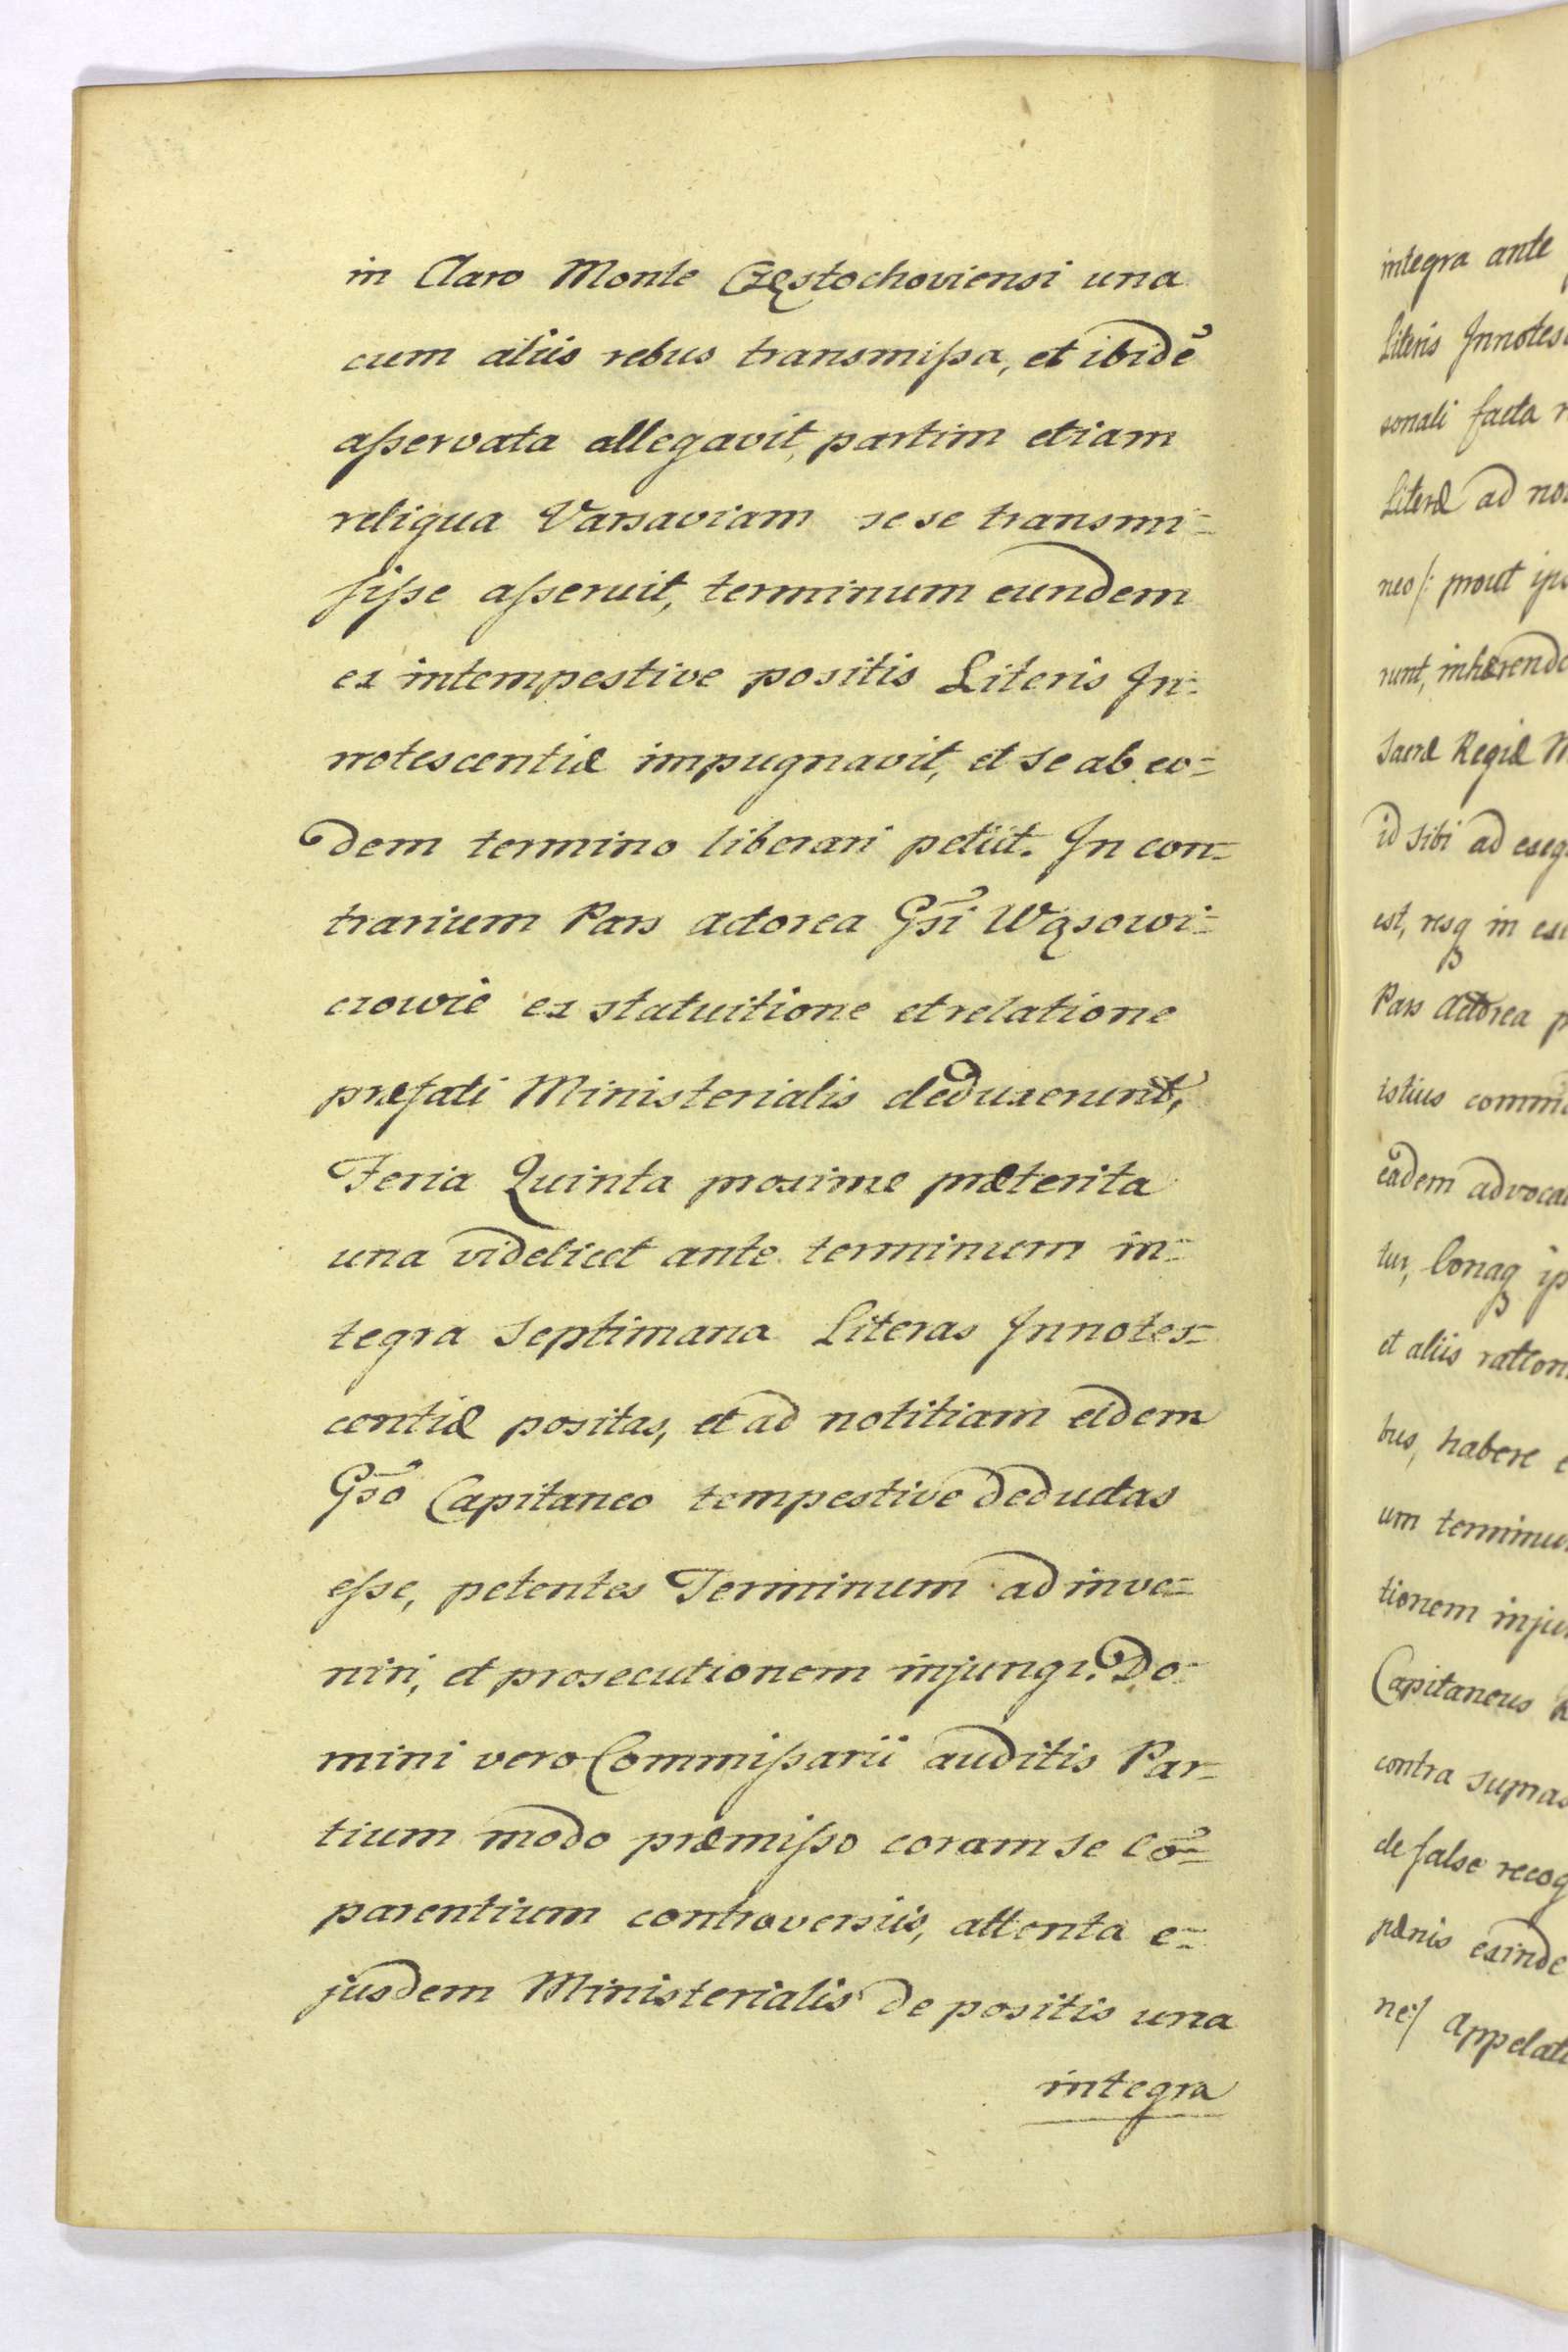 in Claro Monte Częstochoviensi una
cum aliis rebus transmissa, et ibidē
asservata allegavit, partim etiam
reliqua Varsaviam sese transmi=
sisse asseruit, terminum eundem
ex intempestive positis Literis In=
notescentiæ impugnavit, et se ab eo=
dem termino liberari petiit. In con=
trarium Pars actorea Gsi Wąsowi=
czowie ex statuitione et relatione
præfati Ministerialis deduxerunt,
Feria Quinta proxime præterita
una videlicet ante terminum in=
tegra Septimana Literas Innotes=
centiæ positas, et ad notitiam eidem
Gso Capitaneo tempestive deductas
esse, petentes Terminum adinve=
niri, et prosecutionem injungi. Do=
mini vero Commissarii auditis Par=
tium modo præmisso coram se cō=
parentium controversiis, attenta e=
jusdem Ministerialis de positis una
integra
integra ante
Literis Innotes
sonali facta
Literæ ad
neo/: prout
runt,
Sacræ Regiæ
id sibi ad
est, resq in
Pars Actorea
istius
eadem
tur, bonaq
et aliis
bus, habere
um
tionem
Capitaneus
contra
de false
pænis exinde
ne:/